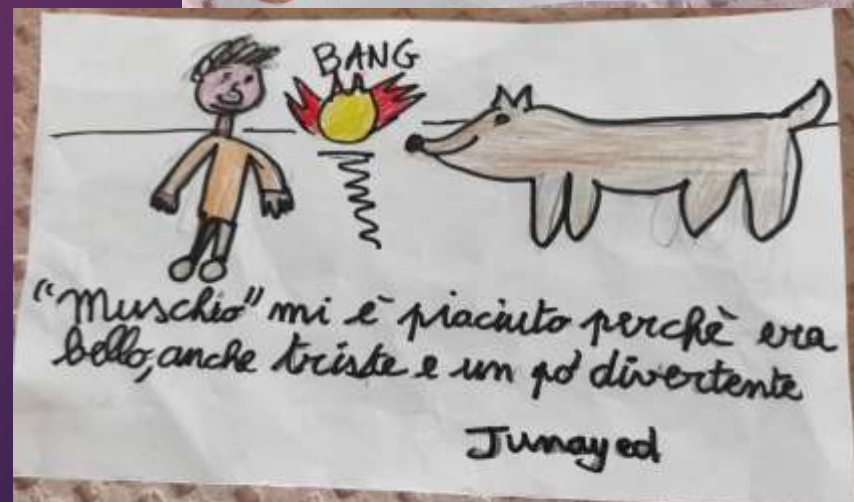 BANG
"Muschio" mi è piaciuto perchè era
bello, anche triste e un pò divertente
Junayed